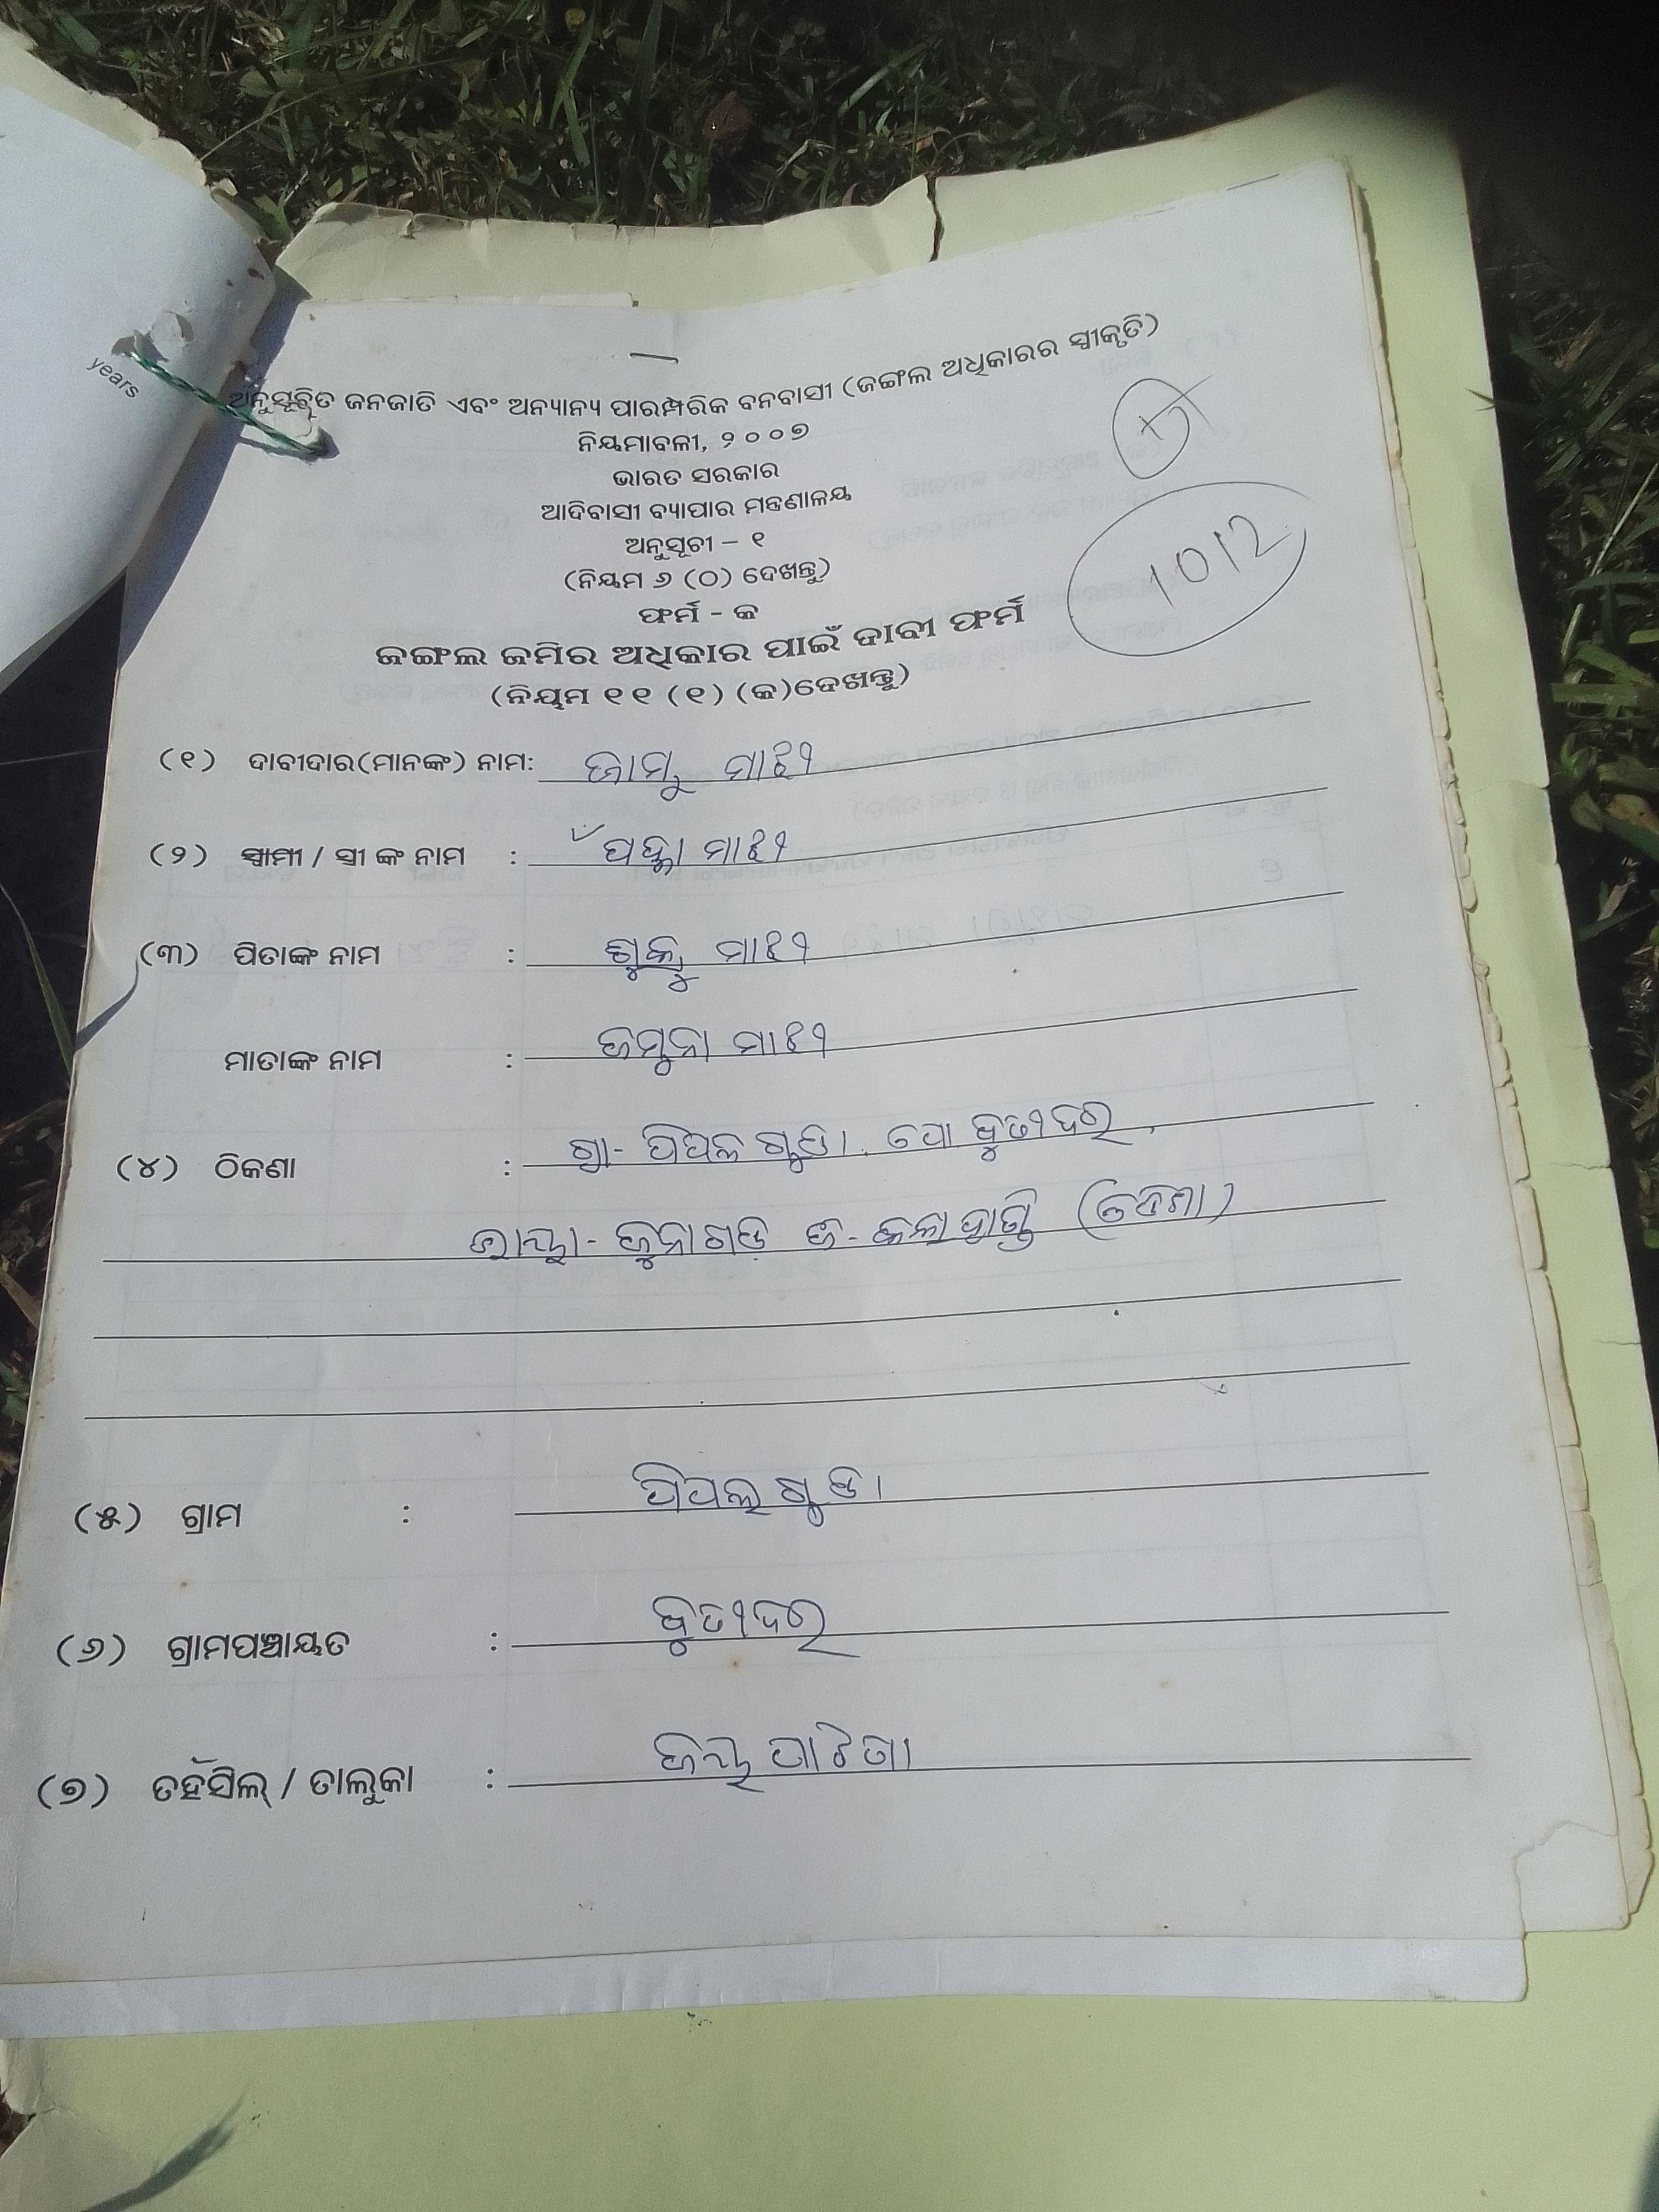 years
ଅନୁସୂଚିତ ଜନଜାତି ଏବଂ ଅନ୍ୟାନ୍ୟ ପାରମ୍ପରିକ ବନବାସୀ (ଜଙ୍ଗଲ ଅଧିକାରର ସ୍ୱୀକୃତି)
ନିୟମାବଳୀ, ୨୦୦୭
ଭାରତ ସରକାର
ଆଦିବାସୀ ବ୍ୟାପାର ମନ୍ତ୍ରଣାଳୟ
ଅନୁସୂଚୀ – ୧
(ନିୟମ ୬ (ଠ) ଦେଖନ୍ତୁ)
1012
ଫର୍ମ - କ
ଜଙ୍ଗଲ ଜମିର ଅଧିକାର ପାଇଁ ଦାବୀ ଫର୍ମ
(ନିୟମ ୧୧ (୧) (କ)ଦେଖନ୍ତୁ)
(୧) ଦାବୀଦାର(ମାନଙ୍କ) ନାମ: ଜାମୁ ମାଝୀ
(୨) ସ୍ୱାମୀ / ସ୍ତ୍ରୀ ଙ୍କ ନାମ : ମାଝୀ
(୩) ପିତାଙ୍କ ନାମ : ଶୁକ୍ରୁ ମାଝୀ
ମାତାଙ୍କ ନାମ : ଜମୁନା ମାଝୀ
(୪) ଠିକଣା : ଗ୍ରା- ପିପଲଗୁଡା. ପୋ
ଭାୟା- ଜୁନାଗଡ଼ ଜି- କଳାହାଣ୍ଡି (ଓଡିଶା)
(୫) ଗ୍ରାମ : ପିପଲଗୁଡା
(୬) ଗ୍ରାମପଞ୍ଚାୟତ :
(୭) ତହସିଲ୍ / ତାଲୁକା : ଜୟପାଟଣା